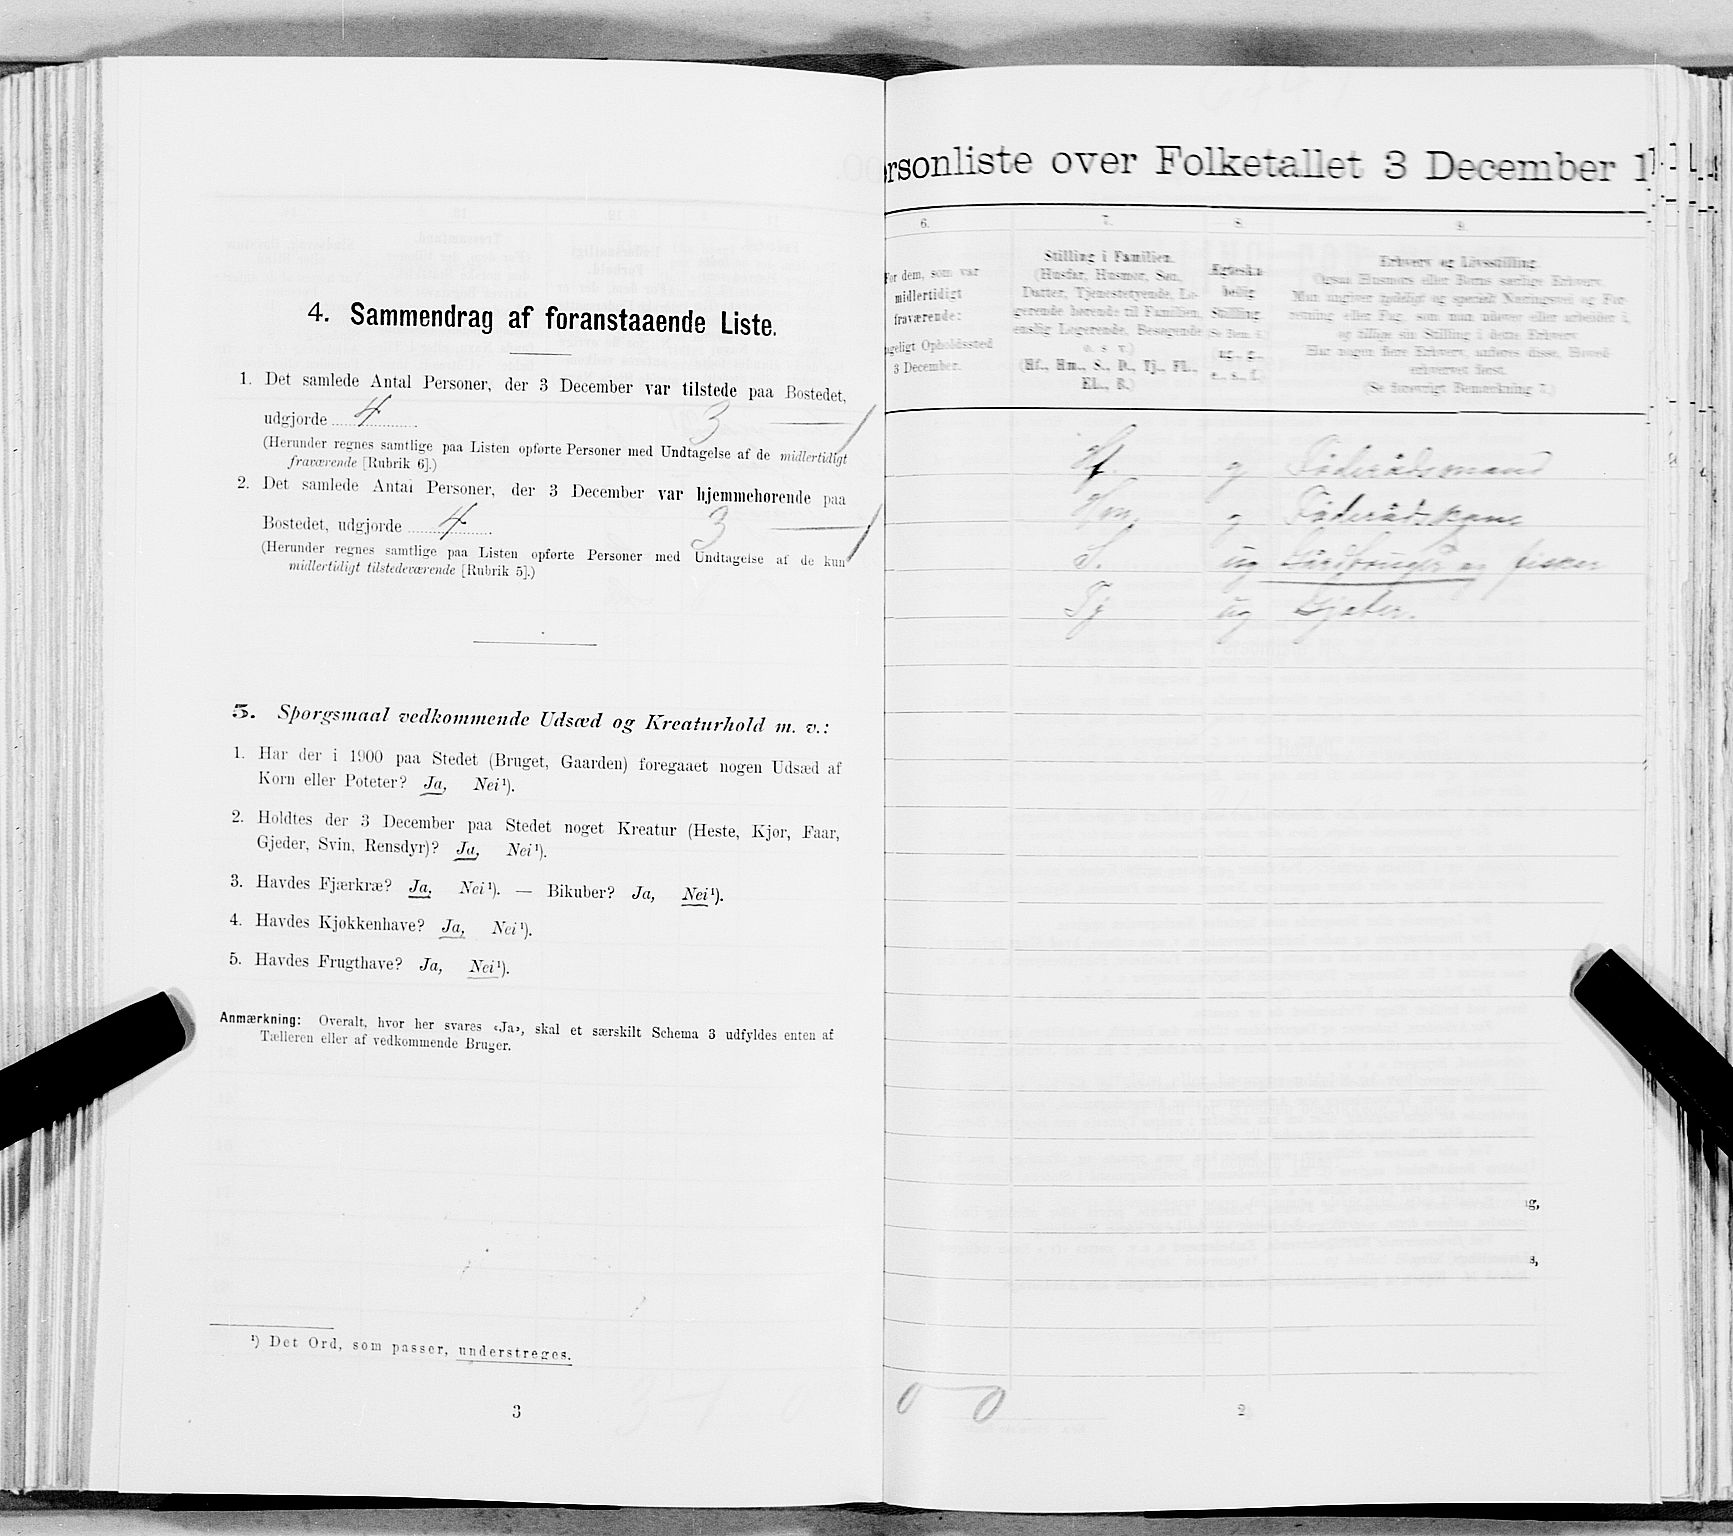 4. Sammendrag af foranstaaende Liste.
1. Det samlede Antal Personer, der 3 December var tilstede paa Bostedet,
udgjorde 4 3 — 1
(Herunder regnes samtlige paa Listen opførte Personer med Undtagelse af de midlertidigt
fraværende [Rubrik 6].)
2. Det samlede Antal Personer, der 3 December var hjemmehørende paa
Bostedet, udgjorde 4 3 — 1
(Herunder regnes samtlige paa Listen opførte Personer med Undtagelse af de kun
midlertidigt tilstedeværende [Rubrik 5].)
5. Spørgsmaal vedkommende Udsæd og Kreaturhold m. v.:
1. Har der i 1900 paa Stedet (Bruget, Gaarden) foregaaet nogen Udsæd af
Korn eller Poteter? Ja, Nei¹).
2. Holdtes der 3 December paa Stedet noget Kreatur (Heste, Kjør, Faar,
Gjeder, Svin, Rensdyr)? Ja, Nei¹).
3. Havdes Fjærkræ? Ja, Nei¹). — Bikuber? Ja, Nei¹).
4. Havdes Kjøkkenhave? Ja, Nei¹).
5. Havdes Frugthave? Ja, Nei¹).
Anmærkning: Overalt, hvor her svares «Ja», skal et særskilt Schema 3 udfyldes enten af
Tælleren eller af vedkommende Bruger.
¹) Det Ord, som passer, understreges.
3
rsonliste over Folketallet 3 December 1
6.
For dem, som var
midlertidigt
fraværende:
geligt Opholdssted
3 December.
7.
Stilling i Familien.
(Husfar, Husmor, Søn,
Datter, Tjenestetyende, Lo-
gerende hørende til Familien,
enslig Logerende, Besøgende
o. s. v.)
(Hf., Hm., S., D., Tj., FL.,
EL., B.)
8.
Ægteska-
belig
Stilling.
(Se Bem. 6.)
(ug., g.,
e., s., f.)
9.
Erhverv og Livsstilling.
Ogsaa Husmors eller Børns særlige Erhverv.
Man angiver tydeligt og specielt Næringsvei og For-
retning eller Fag, som man udøver eller arbeider i,
og tillige sin Stilling i dette Erhverv.
Har nogen flere Erhverv, anføres disse, Hoved-
erhvervet først.
(Se forøvrigt Bemærkning 7.)
Hf. g Föderådsmand
Hm. g Föderådskone
S. ug Gårdbruger og fisker
Tj ug Gjeter.
g,
s,
0 — 0
2